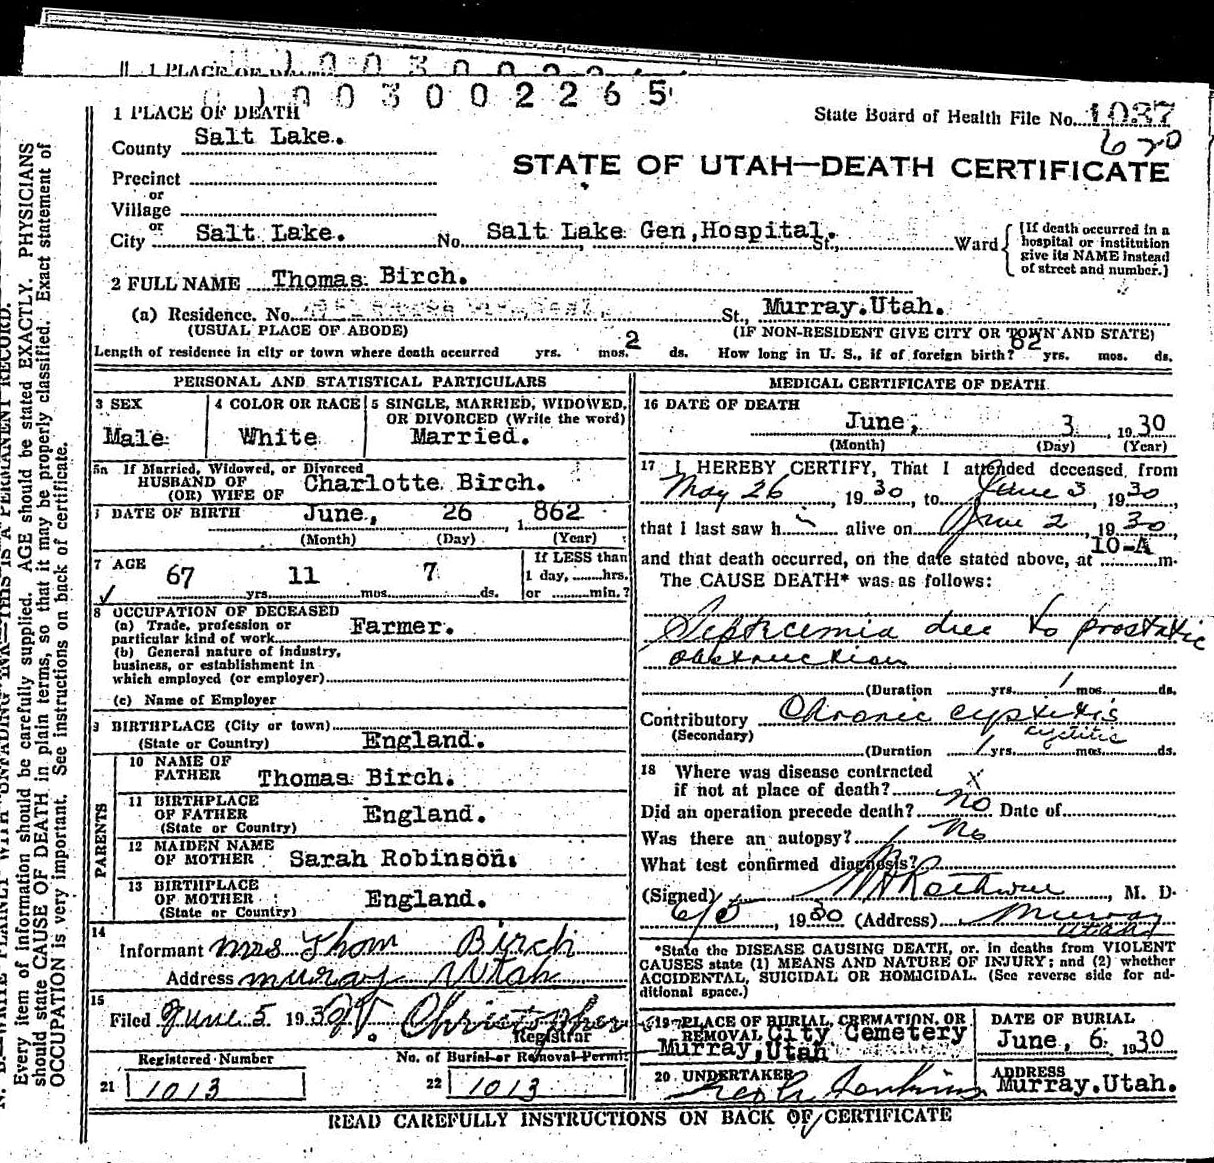 1 PLACE OF DEATH
1003002265
State Board of Health File No. 1037
620
County Salt Lake.
STATE OF UTAH—DEATH CERTIFICATE
Precinct
or
Village
or
City Salt Lake. No. Salt Lake Gen, Hospital. St., Ward
[If death occurred in a hospital or institution give its NAME instead of street and number.]
2 FULL NAME Thomas Birch.
(a) Residence. No. St., Murray.Utah.
(USUAL PLACE OF ABODE) (IF NON-RESIDENT GIVE CITY OR TOWN AND STATE)
Length of residence in city or town where death occurred yrs. mos. 2 ds. How long in U. S., if of foreign birth? 62 yrs. mos. ds.
PERSONAL AND STATISTICAL PARTICULARS
3 SEX
Male
4 COLOR OR RACE
White
5 SINGLE, MARRIED, WIDOWED,
OR DIVORCED (Write the word)
Married.
5a If Married, Widowed, or Divorced
HUSBAND OF
(OR) WIFE OF Charlotte Birch.
DATE OF BIRTH June, 26 , 1862
(Month) (Day) (Year)
7 AGE 67 yrs. 11 mos. 7 ds.
If LESS than
1 day, hrs.
or min.?
8 OCCUPATION OF DECEASED
(a) Trade, profession or
particular kind of work Farmer.
(b) General nature of industry,
business, or establishment in
which employed (or employer)
(c) Name of Employer
9 BIRTHPLACE (City or town)
(State or Country) England.
PARENTS
10 NAME OF
FATHER Thomas Birch.
11 BIRTHPLACE
OF FATHER England.
(State or Country)
12 MAIDEN NAME
OF MOTHER Sarah Robinson.
13 BIRTHPLACE
OF MOTHER England.
(State or Country)
14
Informant Mrs Thom Birch
Address Murray Utah
15
Filed June 5 1930 Christopher
Registrar
Registered Number No. of Burial or Removal Permit
21 1013 22 1013
MEDICAL CERTIFICATE OF DEATH
16 DATE OF DEATH
June, 3 , 1930
(Month) (Day) (Year)
17 I HEREBY CERTIFY, That I attended deceased from
May 26, 1930, to June 3, 1930,
that I last saw h alive on June 2, 1930,
and that death occurred, on the date stated above, at 10-A m.
The CAUSE DEATH* was as follows:
Septicemia due to prostatic
obstruction
(Duration yrs. 1 mos. ds.
Contributory Chronic cystitis
(Secondary) cystitis
(Duration 1 yrs. mos. ds.
18 Where was disease contracted
if not at place of death? X
Did an operation precede death? no Date of
Was there an autopsy? No
What test confirmed diagnosis?
(Signed) , M. D.
6/5, 1930 (Address) Murray
Utah
*State the DISEASE CAUSING DEATH, or in deaths from VIOLENT
CAUSES state (1) MEANS AND NATURE OF INJURY; and (2) whether
ACCIDENTAL, SUICIDAL OR HOMICIDAL. (See reverse side for ad-
ditional space.)
19 PLACE OF BURIAL, CREMATION, OR
REMOVAL City Cemetery
Murray, Utah
DATE OF BURIAL
June, 6 1930
20 UNDERTAKER Jenkins
ADDRESS
Murray.Utah.
READ CAREFULLY INSTRUCTIONS ON BACK OF CERTIFICATE
Every item of information should be carefully supplied. AGE should be stated EXACTLY. PHYSICIANS
should state CAUSE OF DEATH in plain terms, so that it may be properly classified. Exact statement of
OCCUPATION is very important. See instructions on back of certificate.